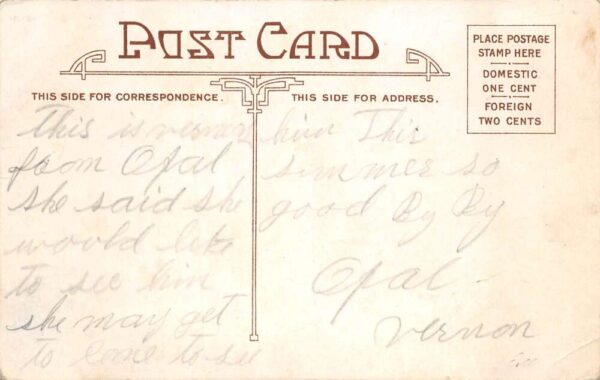 POST CARD
PLACE POSTAGE
STAMP HERE
DOMESTIC
ONE CENT
FOREIGN
TWO CENTS
THIS SIDE FOR CORRESPONDENCE.
THIS SIDE FOR ADDRESS.
This is vernon
from Opal
she said she
would like
to see him
she may get
to come to see
him This
summer so
good By By
Opal -
vernon